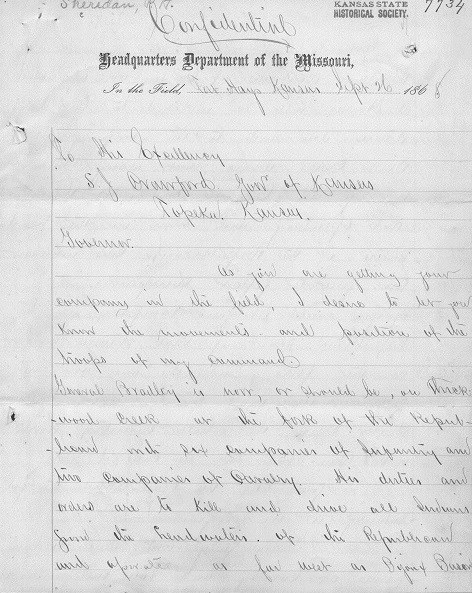 Sheridan, P.H.
KANSAS STATE
HISTORICAL SOCIETY.
7734
Confidential
Headquarters Department of the Missouri,
In the Field, Fort Hays Kansas Sept 26 1868
To His Excellency
S J Crawford Govr of Kansas
Topeka, Kansas.
Governor.
As you are getting your
company in the field, I desire to let you
know the movements and position of the
troops of my command.
General Bradley is now, or should be, on Thick-
-wood Creek at the fork of the Repub-
-lican with six companies of Infantry and
two companies of Cavalry. His duties and
orders are to kill and drive all Indians
from the headwaters of the Republican
and operate as far west as Bijoux Basin